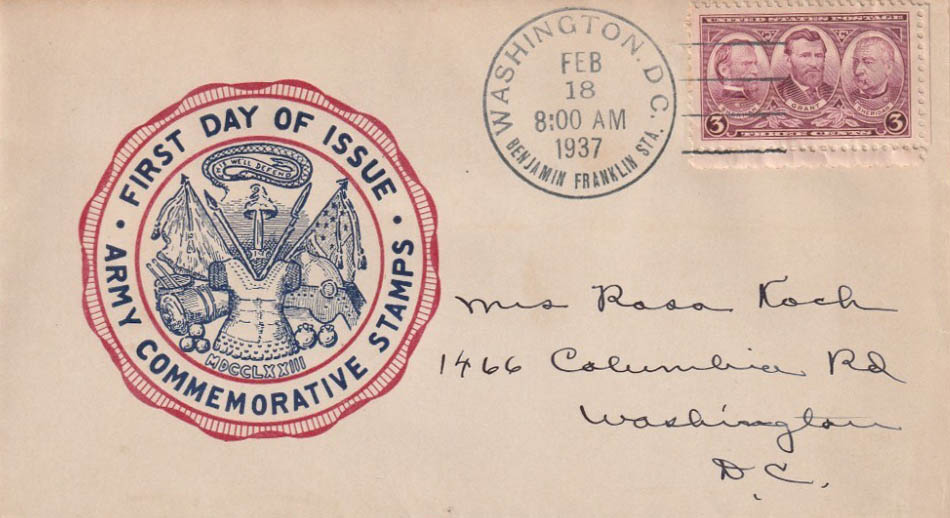 FIRST DAY OF ISSUE
ARMY COMMEMORATIVE STAMPS
WE'LL DEFEND
MDCCLXXIII
WASHINGTON. D.C.
FEB
18
8:00 AM
1937
BENJAMIN FRANKLIN STA.
UNITED STATES POSTAGE
SHERMAN GRANT SHERIDAN
3 THREE CENTS 3
Mrs Rosa Koch
1466 Columbia Rd
Washington
D.C.